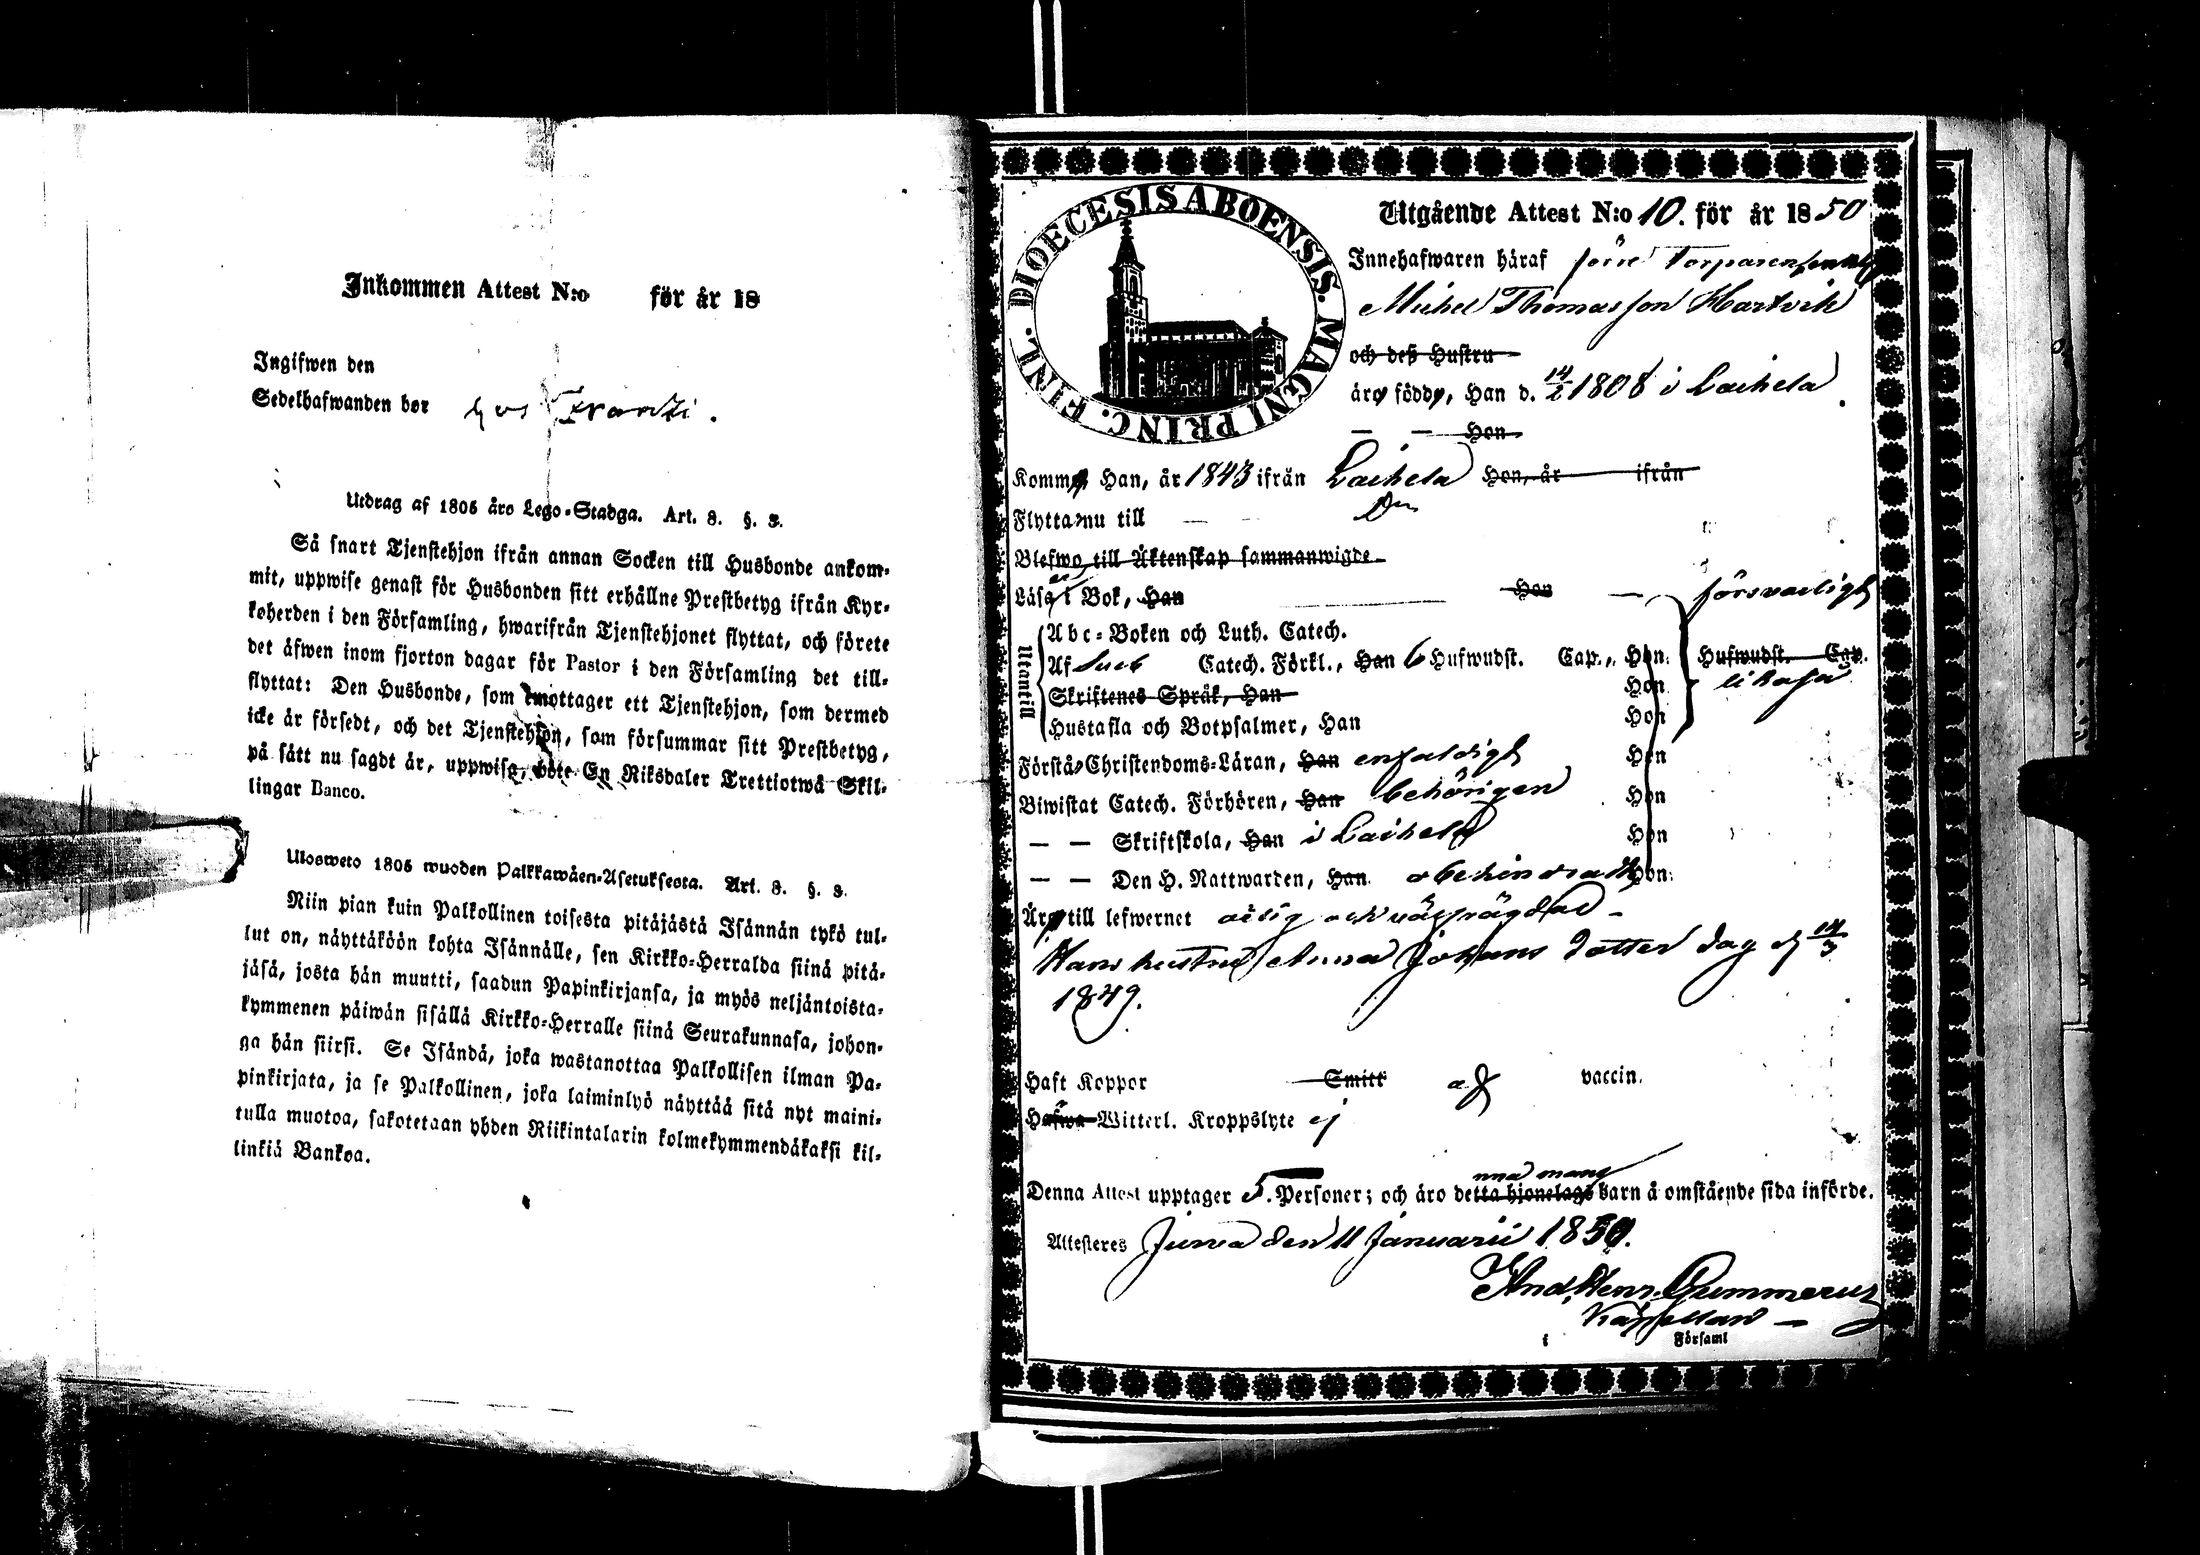 Inkommen Attest N:o för år 18
Ingifwen den
Sedelhafwanden bor hos Franzi.
Utdrag af 1805 års Lego-Stadga. Art. 8. §. 3.
Så snart Tjenstehjon ifrån annan Socken till Husbonde ankom-
mit, uppwise genast för Husbonden sitt erhållne Prestbetyg ifrån Kyr-
koherden i den Församling, hwarifrån Tjenstehjonet flyttat, och förete
det äfwen inom fjorton dagar för Pastor i den Församling det till-
flyttat: Den Husbonde, som emottager ett Tjenstehjon, som dermed
icke är försedt, och det Tjenstehjon, som försummar sitt Prestbetyg,
på sätt nu sagdt är, uppwisa, böte En Riksdaler Trettiotwå Skil-
lingar Banco.
Ulosweto 1805 wuoden Palkkawäen-Asetuksesta. Art. 8. §. 3.
Niin pian kuin Palkollinen toisesta pitäjästä Isännän tykö tul-
lut on, näyttäköön kohta Isännälle, sen Kirkko-Herralda siinä pitä-
jäsä, josta hän muutti, saadun Papinkirjansa, ja myös neljäntoista-
kymmenen päiwän sisällä Kirkko-Herralle siinä Seurakunnasa, johon-
ga hän siirsi. Se Isändä, joka wastanottaa Palkollisen ilman Pa-
pinkirjata, ja se Palkollinen, joka laiminlyö näyttää sitä nyt maini-
tulla muotoa, sakotetaan yhden Riikintalarin kolmekymmendäkaksi kil-
linkiä Bankoa.
DIOECESIS ABOENSIS. MAGNI PRINC. FINL.
Utgående Attest N:o 10. för år 1850
Innehafwaren häraf förre Torparen
Michel Thomasson Hartvik
och deß Hustru
äro födde, Han d. 14/2 1808 i Laihela.
— — Hon
Komme Han, år 1843 ifrån Laihela Hon, år ifrån
Flytta nu till — —
Blefwo till Äktenskap sammanwigde
Läsa i Bok, Han Hon — försvarligt
Utantill
Abc-Boken och Luth. Catech.
Af Sveb Catech. Förkl., Han 6 Hufwudst. Cap., Hon Hufwudst. Cap.
Skriftenes Språk, Han Hon likaså
Hustafla och Botpsalmer, Han Hon
Förstå Christendoms-Läran, Han enfaldigt Hon
Biwistat Catech. Förhören, Han behörigen Hon
— — Skriftskola, Han i Laihela Hon
— — Den H. Nattwarden, Han obehindradt Hon
Äro till lefwernet
Hans hustru Anna Johans dotter dog d 14/3
1849.
Haft Koppor Smitt vaccin.
Hafwa Witterl. Kroppslyte ej
nna mans
Denna Attest upptager 5. Personer; och äro detta hjonelags barn å omstående sida införde.
Attesteres Jurva den 11 Januarii 1850.
And. Henr. Gummerus
Kapellan —
i Församl